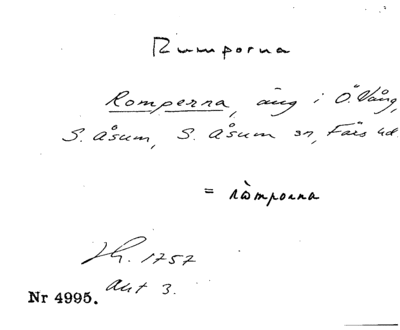 Rumporna
Romperna, äng i Ö. Vång,
S. Åsum, S. Åsum sn, Färs hd.
= ròmporna
Jh. 1757
akt 3.
Nr 4995.